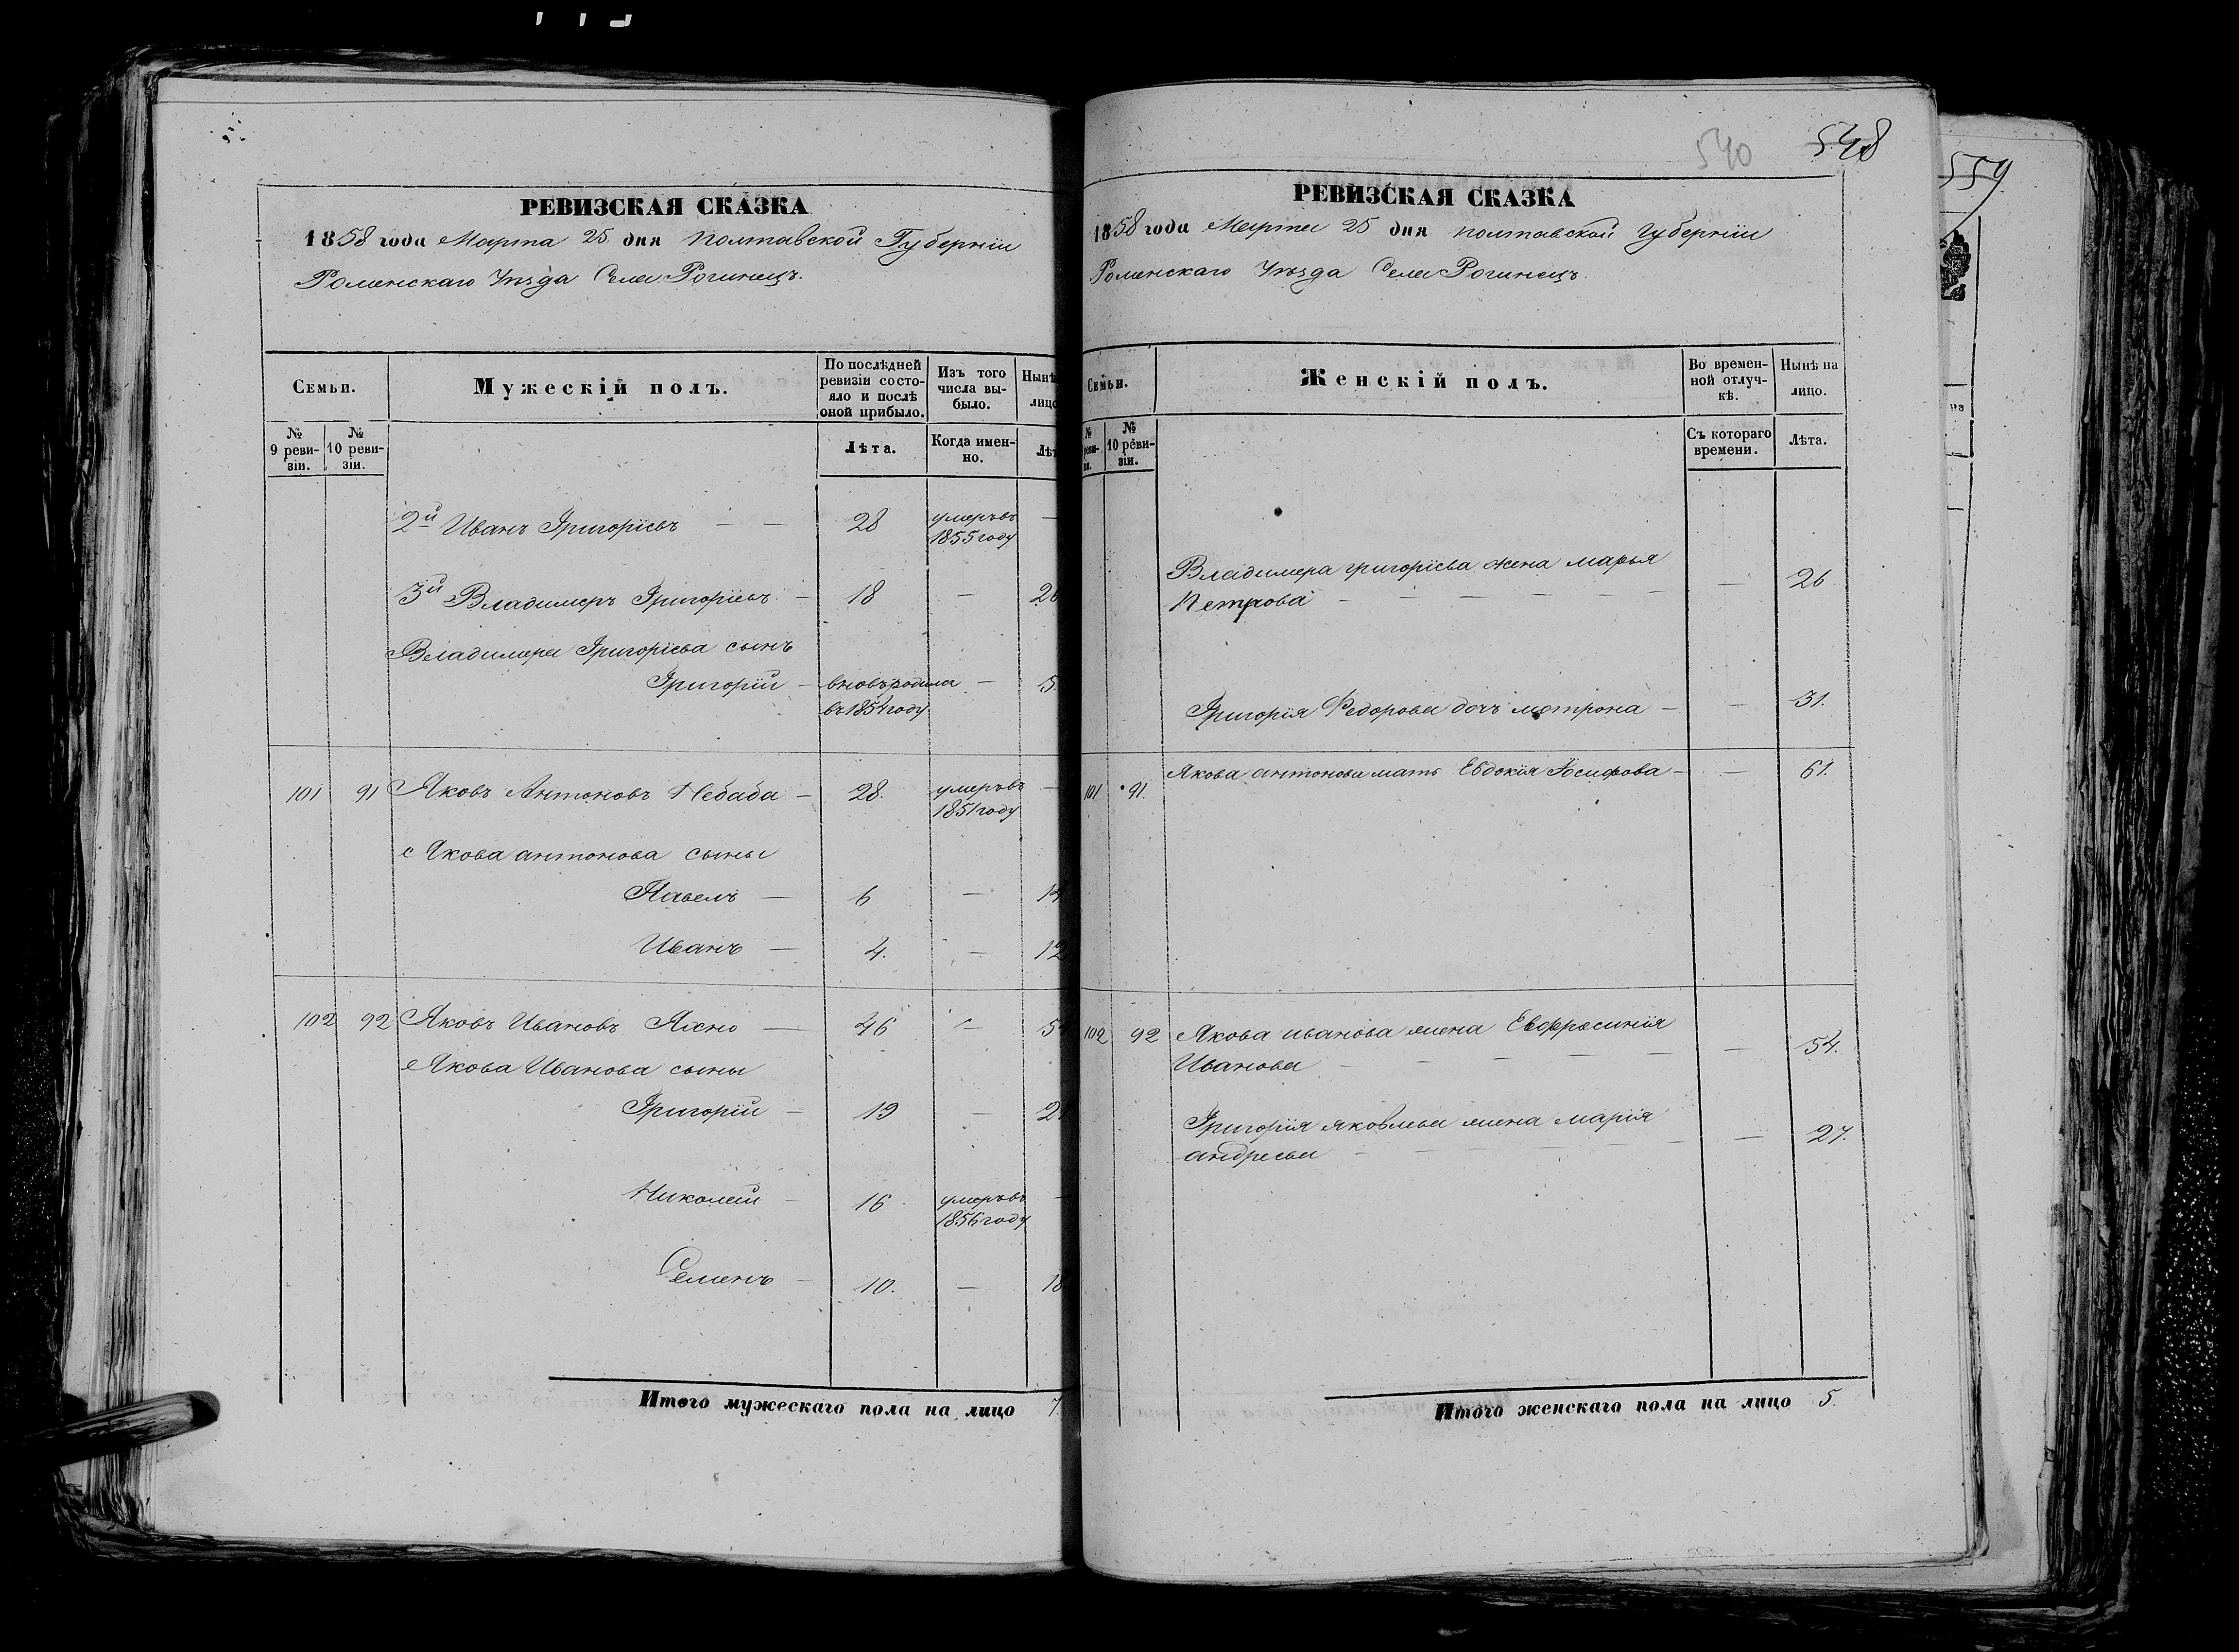 РЕВИЗСКАЯ СКАЗКА
1858 года Марта 25 дня Полтавской Губернiи
Роменскаго Уѣзда Села Рогинецъ.
Семьи.
Мужескiй полъ.
По послѣдней ревизiи состо-
яло и послѣ оной прибыло.
Изъ того числа вы-
было.
Нынѣ
лицо
№ 9 реви-
зiи.
№ 10 реви-
зiи.
Лѣта.
Когда имен-
но.
Лѣт
2й Иванъ Григорiевъ — — 28 умеръ въ —
1855 году
3й Владимеръ Григорiевъ — 18 — 26
Владимера Григорiева сынъ
Григорiй — вновь родился — 5.
въ 1854 году
101 91 Яковъ Антоновъ Небаба — 28. умеръ въ —
1851 году
Якова антонова сыны
Павелъ — 6 — 14
Иванъ — 4. — 12
102 92 Яковъ Ивановъ Яхно — 46 — 54
Якова Иванова сыны
Григорiй — 19 — 2
Николай — 16 умеръ въ —
1856 году
Семенъ — 10. — 18
Итого мужескаго пола на лицо 7.
540 548
РЕВИЗСКАЯ СКАЗКА
1858 года Марта 25 дня полтавской Губернiи
Роменскаго Уѣзда Села Рогинецъ.
Семьи.
Женскiй полъ.
Во времен-
ной отлуч-
кѣ.
Нынѣ на
лицо.
№
реви-
зiи.
№ 10 реви-
зiи.
Съ котораго
времени.
Лѣта.
Владимера григорiева жена марья
Петрова — — — — — — 26
Григорiя Федорова дочь мотрона — — 31.
101 91. Якова антонова мать Евдокiя Юсифова — — 61.
102 92 Якова иванова жена Евфросинiя
Иванова — — — — — 54.
Григорiя яковлева жена марiя
андреева — — — — — 27.
Итого женскаго пола на лицо 5.
559
на